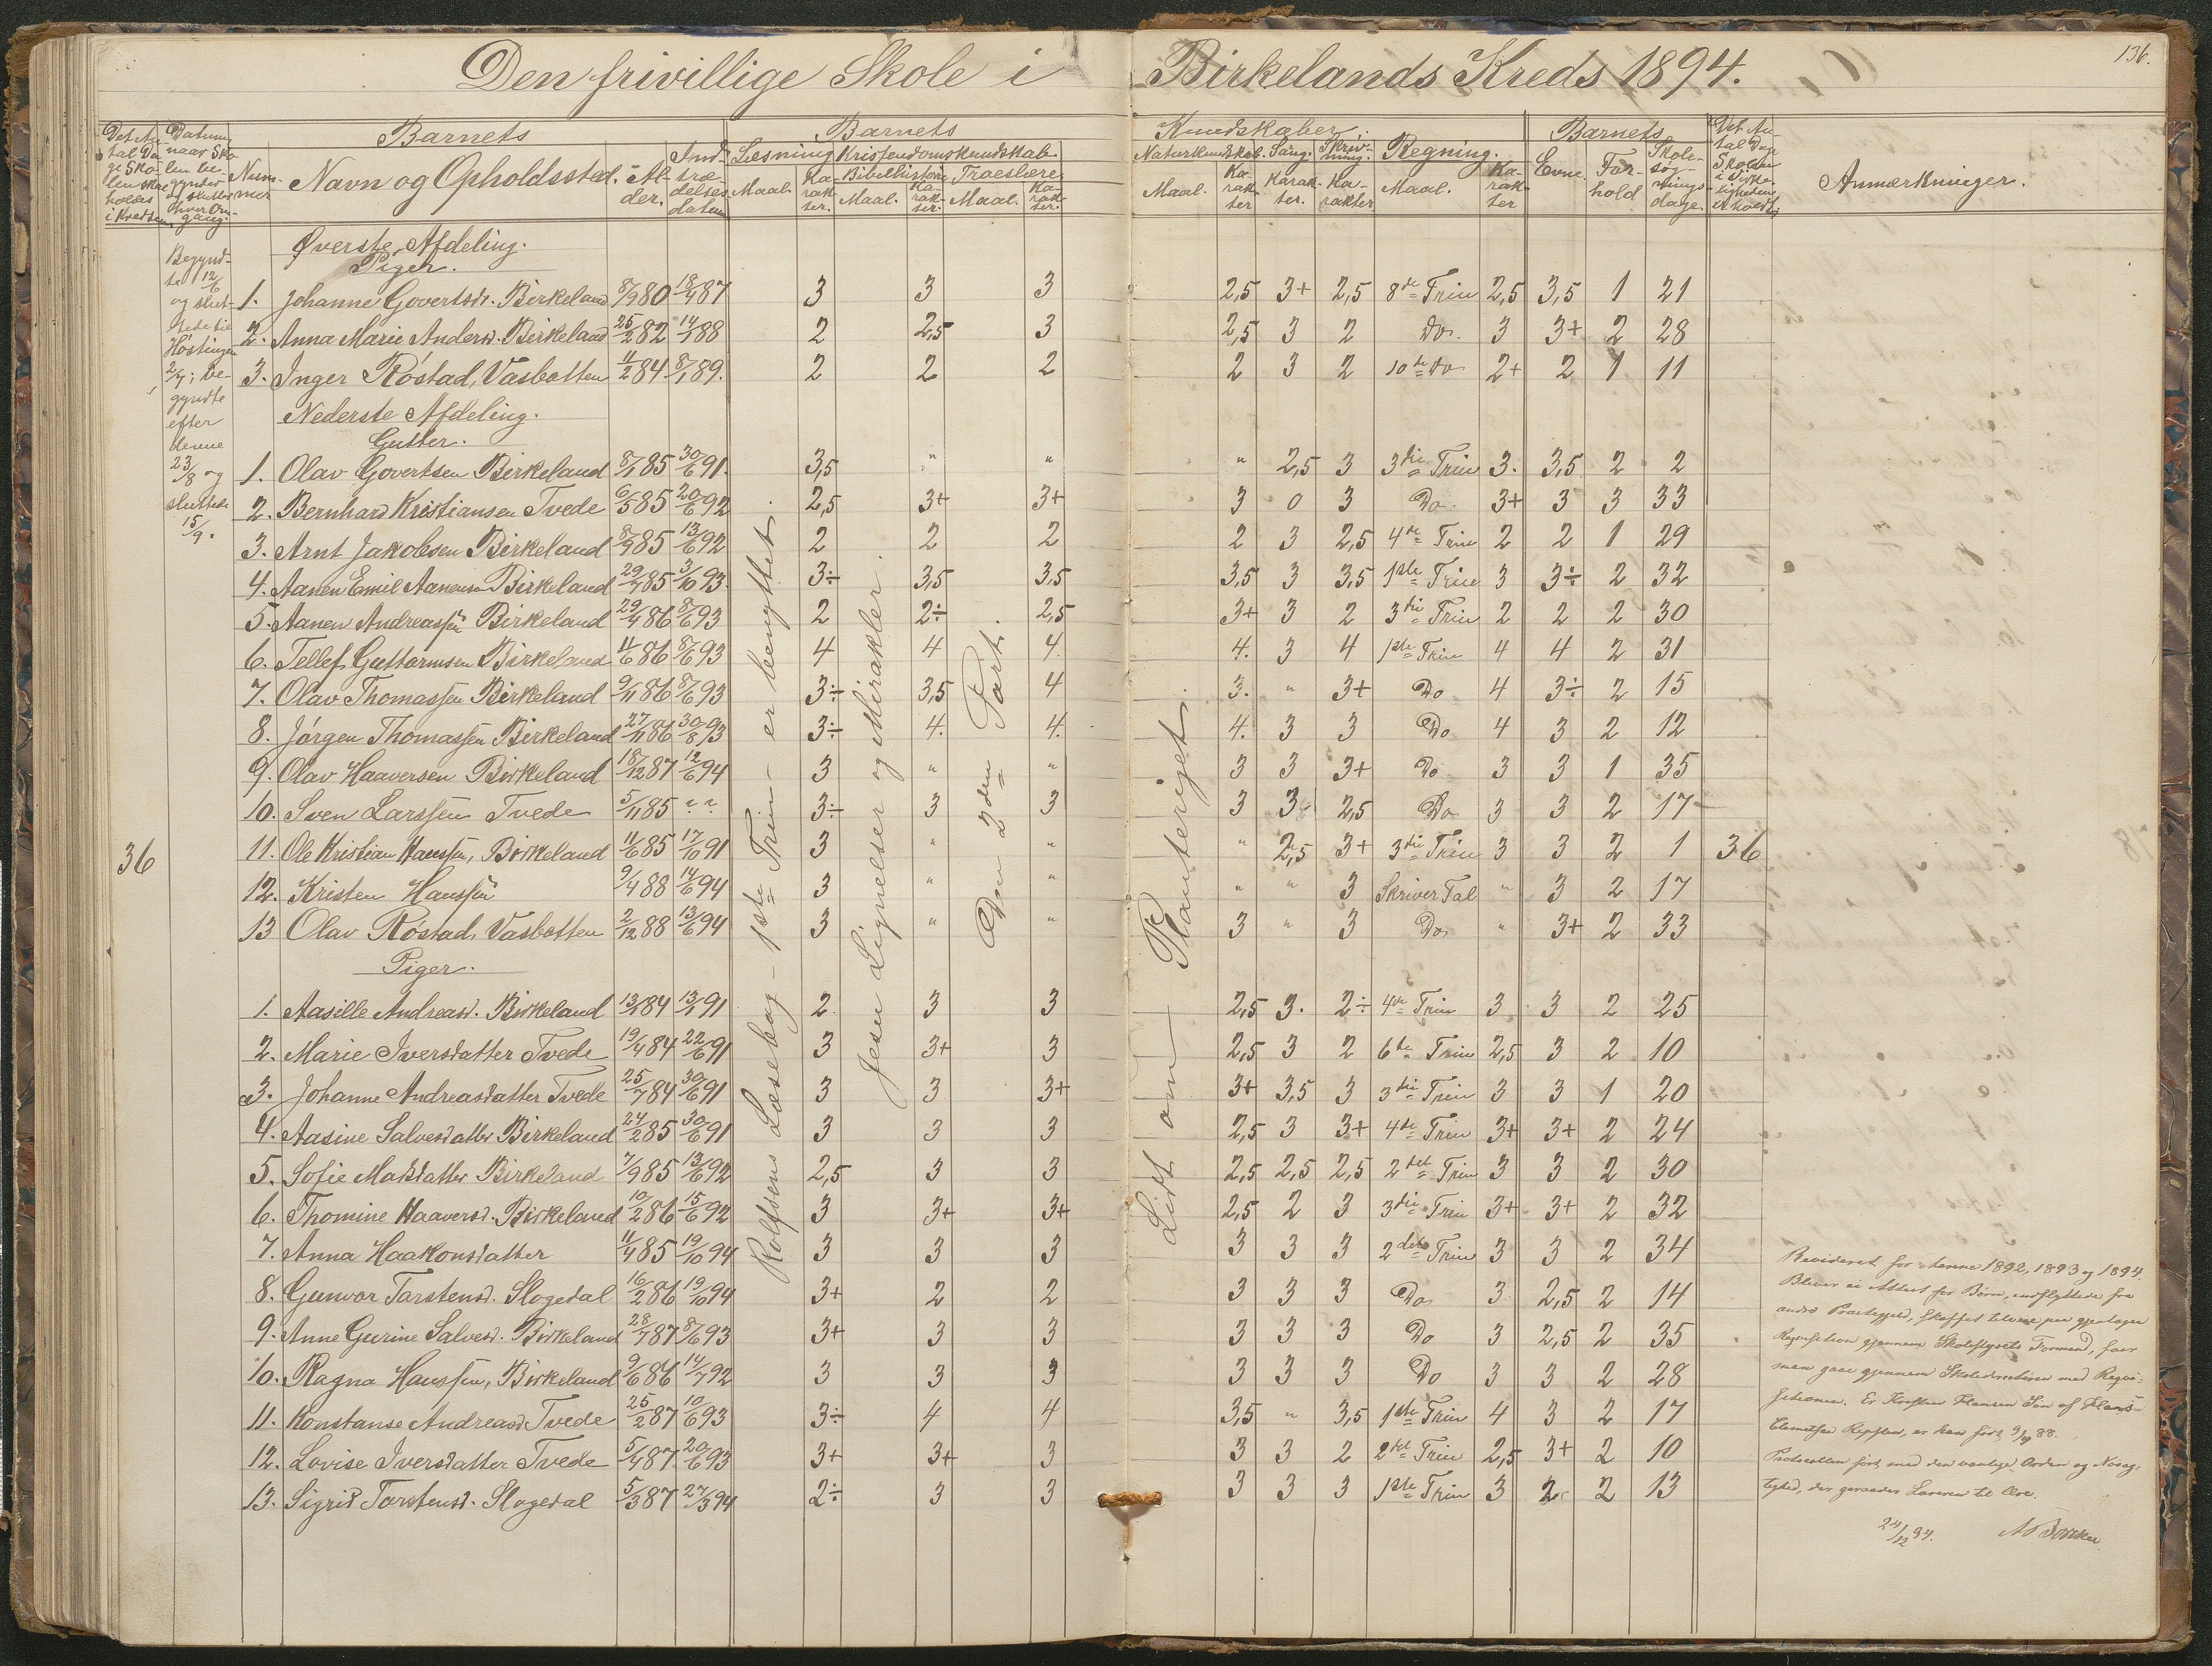 136.
Den frivillige Skole i Birkelands Kreds 1894.
Det An- tal Da- ge Sko- len skal holdes i Kredsen. Datum, naar Sko- len be- gynder og slutter hver Om- gang. Num- mer Barnets Navn og Opholdssted. Al- der. Ind- træ- delses- datum Barnets Læsning Maal. Ka- rak- ter. Kristendomskundskab. Bibelhistorie Maal. Ka- rak- ter. Troeslære. Maal. Ka- rak- ter.
Kundskaber. Naturkundskab. Maal. Ka- rak- ter Sang. Karak- ter. Skriv- ning. Ka- rakter Regning. Maal. Ka- rak- ter Barnets Evne. For- hold Skole- søg- nings- dage. Det An- tal Dage Skolen i Virke- ligheden er holdt. Anmærkninger.
Begynd-
te 12/6
og slut-
tede til
Høstingen
2/7; be-
gyndte
efter
denne
23/8 og
sluttede
15/9.
36
Rolfsens Læsebog - 1ste Trin - er benyttet.
Jesu Lignelser og Mirakler.
Den 2den Part.
Lidt om Planteriget.
Øverste Afdeling.
Piger.
1. Johanne Govertsdr. Birkeland 8/9 80 18/4 87 3 3 3 2,5 3+ 2,5 8de Trin 2,5 3,5 1 21
2. Anna Marie Andersd. Birkeland 25/2 82 14/1 88 2 2,5 3 2,5 3 2 Do. 3 3+ 2 28
3. Inger Röstad, Vasbotten 11/2 84 8/1 89. 2 2 2 2 3 2 10de Do 2+ 2 1 11
Nederste Afdeling.
Gutter.
1. Olav Govertsen Birkeland 8/1 85 30/6 91. 3,5 " " " 2,5 3 3die Trin 3. 3,5 2 2
2. Bernhard Kristiansen Tvede 6/5 85 20/6 92 2,5 3+ 3+ 3 0 3 Do. 3+ 3 3 33
3. Arnt Jakobsen Birkeland 8/9 85 13/6 92 2 2 2 2 3 2,5 4de Trin 2 2 1 29
4. Aanen Emil Aanensen Birkeland 29/7 85 3/10 93. 3÷ 3,5 3,5 3,5 3 3,5 1ste Trin 3 3÷ 2 32
5. Aanen Andreassen Birkeland 29/4 86 8/6 93 2 2÷ 2,5 3+ 3 2 3die Trin 2 2 2 30
6. Tellef Guttormsen Birkeland 11/6 86 8/6 93 4 4 4. 4. 3 4 1ste Trin 4 4 2 31
7. Olav Thomassen Birkeland 9/11 86 8/6 93 3÷ 3,5 4 3. " 3+ Do 4 3÷ 2 15
8. Jörgen Thomassen Birkeland 27/11 86 30/8 93 3÷ 4. 4. 4. 3 3 Do 4 3 2 12
9. Olav Haaversen Birkeland 18/12 87 12/6 94 3 " " 3 3 3+ Do 3 3 1 35
10. Sven Larssen Tvede 5/11 85 ? ? 3÷ 3 3 3 3 2,5 Do 3 3 2 17
11. Ole Kristian Hanssen, Birkeland 11/6 85 17/10 91 3 " " " 2,5 3+ 3die Trin 3 3 2 1 36
12. Kristen Hanssen 9/4 88 14/6 94 3 " " " " 3 Skriver Tal " 3 2 17
13 Olav Röstad, Vasbotten 2/12 88 13/6 94 3 " " 3 " 3 Do " 3+ 2 33
Piger.
1. Aasille Andreasd. Birkeland 13/1 84 13/1 91 2. 3 3 2,5 3. 2÷ 4de Trin 3 3 2 25
2. Marie Iversdatter Tvede 19/4 84 22/6 91 3 3+ 3 2,5 3 2 6te Trin 2,5 3 2 10
3. Johanne Andreasdatter Tvede 25/7 84 30/6 91 3 3 3+ 3+ 3,5 3 3die Trin 3 3 1 20
4. Aasine Salvesdatter Birkeland 24/2 85 30/6 91 3 3 3 2,5 3 3+ 4de Trin 3+ 3+ 2 24
5. Sofie Matsdatter Birkeland 7/9 85 13/6 92 2,5 3 3 2,5 2,5 2,5 2det Trin 3 3 2 30
6. Thomine Haaversd. Birkeland 10/2 86 15/6 92 3 3+ 3+ 2,5 2 3 3die Trin 3+ 3+ 2 32
7. Anna Haakonsdatter 11/4 85 19/10 94 3 3 3 3 3 3 2det Trin 3 3 2 34
8. Gunvor Tarstensd. Slogedal 16/2 86 19/10 94 3+ 2 2 3 3 3 Do 3 2,5 2 14
9. Anne Gurine Salvesd. Birkeland 28/7 87 8/6 93 3+ 3 3 3 3 3 Do 3 2,5 2 35
10. Ragna Hanssen, Birkeland 9/6 86 14/7 92 3 3 3 3 3 3 Do 3 3 2 28
11. Konstanse Andreasd. Tvede 25/2 87 10/6 93 3÷ 4 4 3,5 " 3,5 1ste Trin 4 3 2 17
12. Lovise Iversdatter Tvede 5/4 87. 20/6 93 3+ 3+ 3 3 3 2 2det Trin 2,5 3+ 2 10
13. Sigrid Torstensd. Slogedal 5/3 87 27/3 94 2÷ 3 3 3 3 3 1ste Trin 3 2 2 13
Revideret for Aarene 1892, 1893 og 1894.
Bliver ei Attest for Børn, indflyttede fra
andre Præstegjeld, skaffet tilveie paa gjentagen
Requisition gjennem Skolestyrets Formand, faar
man gaae gjennem Skoledirektøren med Requi-
sitionen. Er Kristen Hansen Søn af Hans
er han født 9/4 88.
Protocollen ført med den vanlige Orden og Nøiag-
tighed, der geraader Læreren til Ære.
24/12 94.